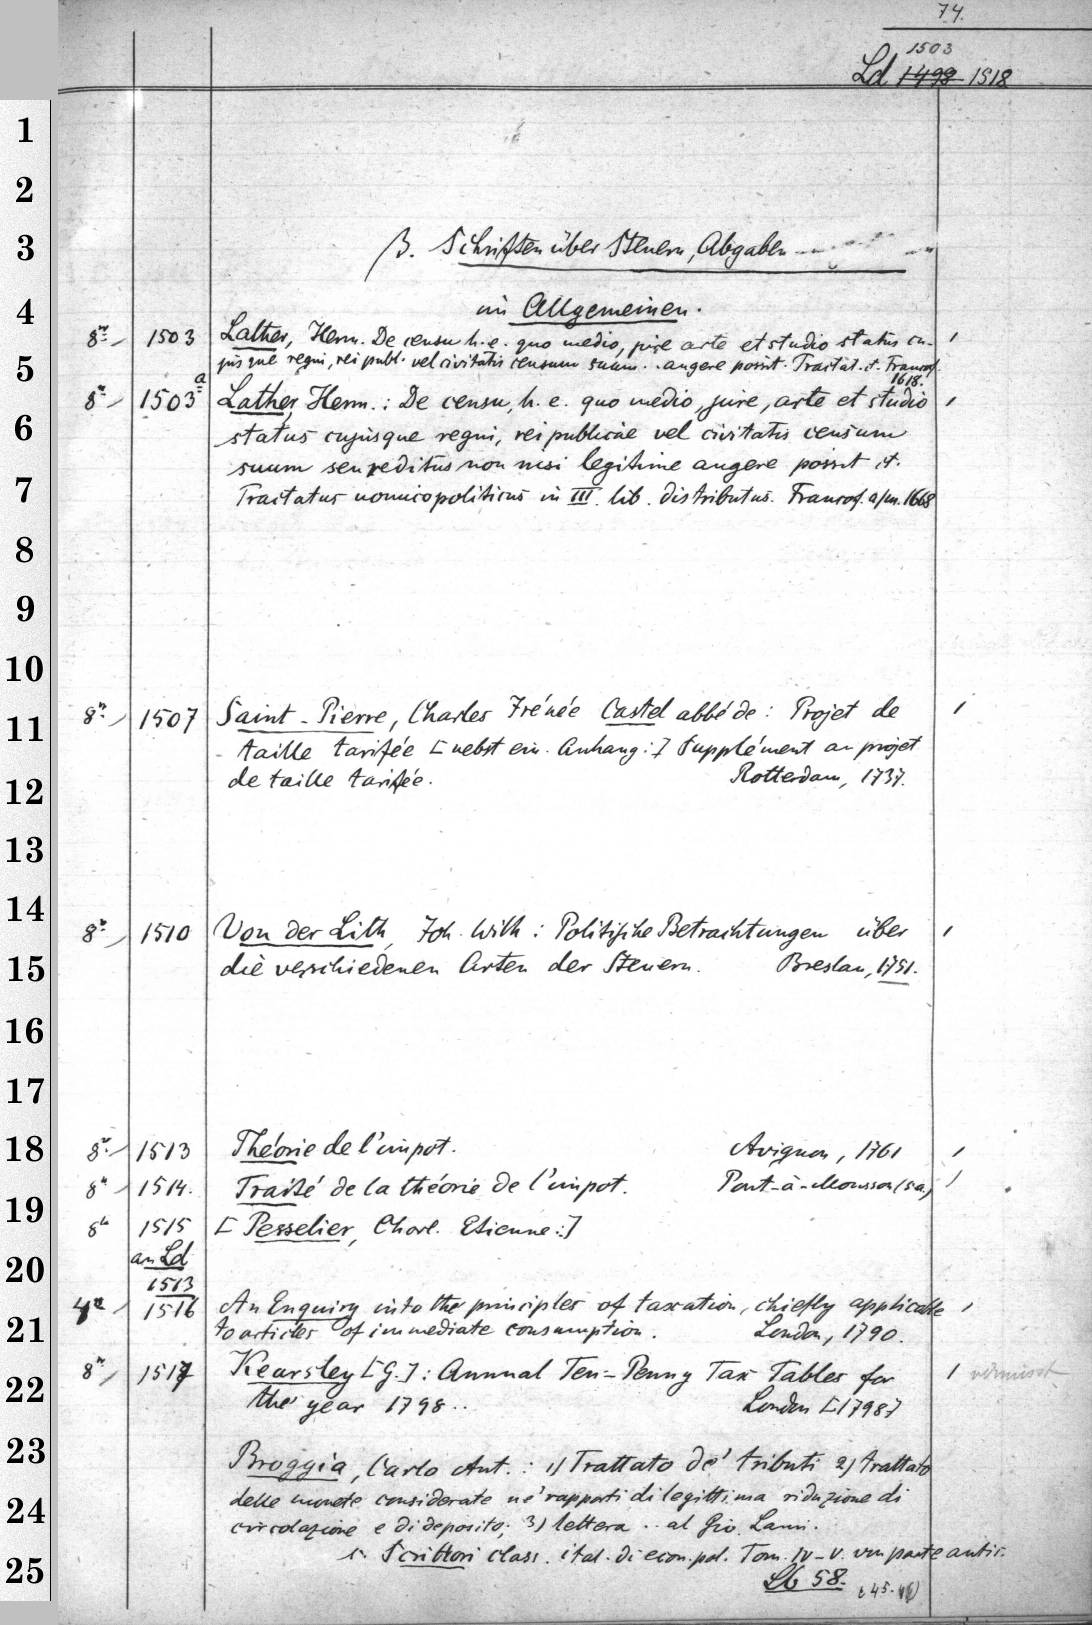 74.
1503
Ld 1498 1518
β. Schriften über Steuern, Abgaben
im Allgemeinen.
8° 1503 Lather, Herm. De censu h. e. quo medio, jure arte et studio status cu- 1
jusque regni, rei publ. vel civitatis censum suum .. augere possit. Tractat. et. Francof.
1618.
8° 1503 a Lather, Herm.: De censu, h. e. quo medio, jure, arte et studio 1
status cujusque regni, rei publicae vel civitatis censum
suum seu reditus non nisi legitime augere possit et.
Tractatus nomicopoliticus in III. lib. distributus. Francof. a/m. 1668
8° 1507 Saint-Pierre, Charles Irénée Castel abbé de: Projet de 1
taille tarifée [nebst ein. Anhang:] Supplément au projet
de taille tarifée. Rotterdam, 1737.
8° 1510 Von der Lith, Joh. Wilh: Politische Betrachtungen über 1
die verschiedenen Arten der Steuern. Breslau, 1751.
8° 1513 Théorie de l'impot. Avignon, 1761 1
8° 1514. Traité de la théorie de l'impot. Pont-à-Mousson (s.a.) 1
8° 1515 [Pesselier, Charl. Etienne:]
an Ld
1513
4° 1516 An Enquiry into the principles of taxation, chiefly applicable 1
to articles of immediate consumption. London, 1790.
8° 1517 Kearsley [G.]: Annual Ten-Penny Tax Tables for 1 vermisst
the year 1798.. London [1798]
Broggia, Carlo Ant.: 1) Trattato de' tributi 2) trattato
delle monete considerate ne' rapporti di legittima riduzione di
circolazione e di deposito; 3) lettera .. al Gio. Lami.
s. Scrittori class. ital. di econ. pol. Tom. IV-V. von parte antic.
Lb 58.